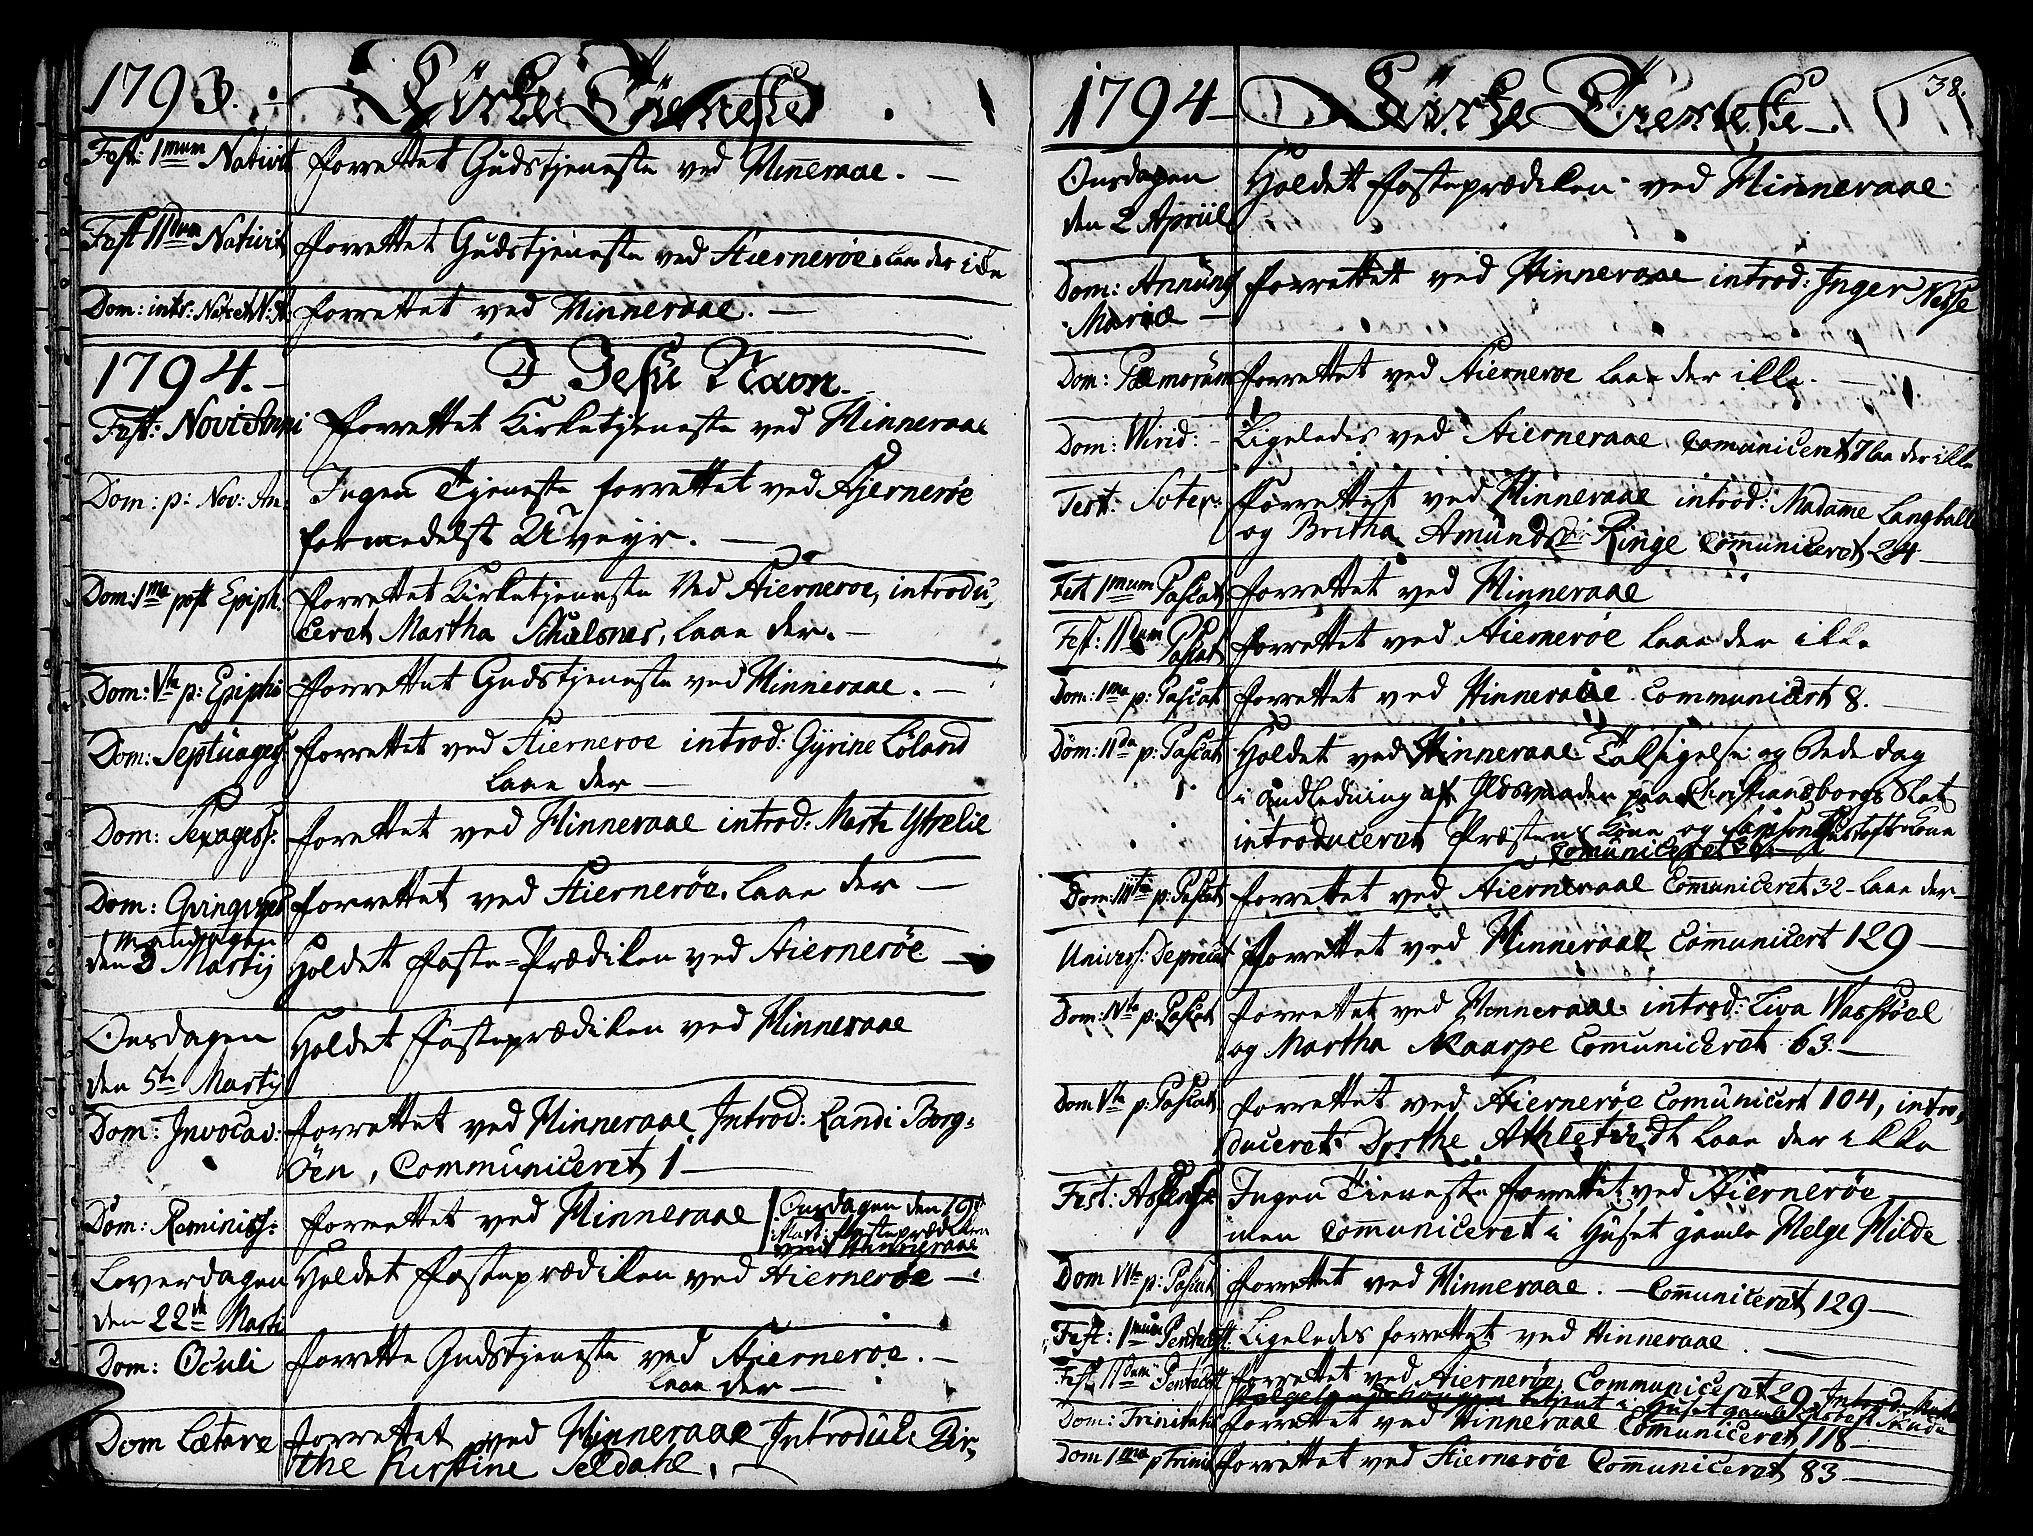 1793. Kirke Tieneste
Fest: 1mum Nativit forrettet Gudstjeneste ved Hinneraae. —
Fest 11dum Nativit forrettet Gudstjeneste ved Hiernerøe laae der icke
Dom: intr: Nat: et N: A: forrettet ved Hinneraae. —
1794. — I Jesu Navn.
Fest: Novi Anni forrettet Kirketjeneste ved Hinneraae
Dom: p: Nov: An: Ingen Tjeneste forrettet ved Hjernerøe
formedelst Uveyr. —
Dom: 1ma post Epiph. forrettet Kirketjeneste ved Hiernerøe, introdu,
ceret Martha Schulsnes, laae der. —
Dom: Vta p: Epipha forrettet Gudstjeneste ved Hinneraae. —
Dom: Septuages: forrettet ved Hiernerøe introd: Gyrine Løland
laae der —
Dom: Sexages: forrettet ved Hinneraae introd: Marte Ytrelie
Dom: Qvinqvages forrettet ved Hiernerøe. laae der —
Mandagen
den 3 Martij Holdet Faste-Prædiken ved Hiernerøe —
Onsdagen Holdet Fasteprædiken ved Hinneraae
den 5te Martij
Dom: Invocav: forrettet ved Hinneraae Introd: Randi Borg-
øen, Communiceret 1 —
Dom: Reminisc: forrettet ved Hinneraae Onsdagen den 19de
Mart: Fasteprædiken
ved Hinneraae
Løverdagen Holdet Fasteprædiken ved Hiernerøe —
den 22de Marti
Dom: Oculi forrette Gudstjeneste ved Hiernerøe. —
laae der —
Dom Lætare forrettet ved Hinneraae Introdule Bir,
the Kirstine Seldahl. —
1794 — Kirke Tieneste — 38.
Onsdagen Holdet Fasteprædiken ved Hinneraae
den 2 Apriil
Dom: Annunc forrettet ved Hinneraae introd: Inger Nesse
Mariæ —
Dom: Palmorum forrettet ved Hiernerøe laae der ikke. —
Dom: Virid: — Ligeledes ved Hierneraae Comuniceret 7 laae der ikke
Fest: Soter: forrettet ved Hinneraae introd: Madame Langhalle
og Britha Amunds Ringe Comuniceret 24
Fest 1mum Pascat forrettet ved Hinneraae
Fest: 11dum Pascat forrettet ved Hiernerøe laae der ikke
Dom: 1ma p: Pascat forrettet ved Hinneraae Communicert 8. —
Dom: 11da p: Pascat Holdet ved Hinneraae Taksigelse og Bede dag
i Andledning af Ildsvaaden paa Christiansborgs Slot
introduceret Præstens Kone og Kone
Comuniceret
Dom: 111tia p: Pascat forrettet ved Hierneraae Communiceret 32 - laae der —
Univers: Deprecat forrettet ved Hinneraae Comunicert 129 —
Dom: 1Vta p: Pascat forrettet ved Hinneraae introd: Liva Wasstøel
og Martha Skaarpe Comuniceret 63. —
Dom Vta p: Pascat forrettet ved Hiernerøe Comunicert 104, intro,
duceret Dorthe laae der ikke
Fest: Ascensi Ingen Tieneste forrettet ved Hiernerøe
men Communiceret i Huset gamle Helge Milde
Dom VIta p: Pascat forrettet ved Hinneraae. — Comuniceret 129 —
Fest: 1mum Pentecost: Ligeledes forrettet ved Hinneraae. —
Fest 11dum Pentecost forrettet ved Hiernerøe, Communiceret 29 Introd:
i Huset gamle
Dom: Trinitatis forrettet ved Hinneraae Comuniceret 118 —
Dom 1ma p Trinit forrettet ved Hiernerøe Comuniceret 83 —